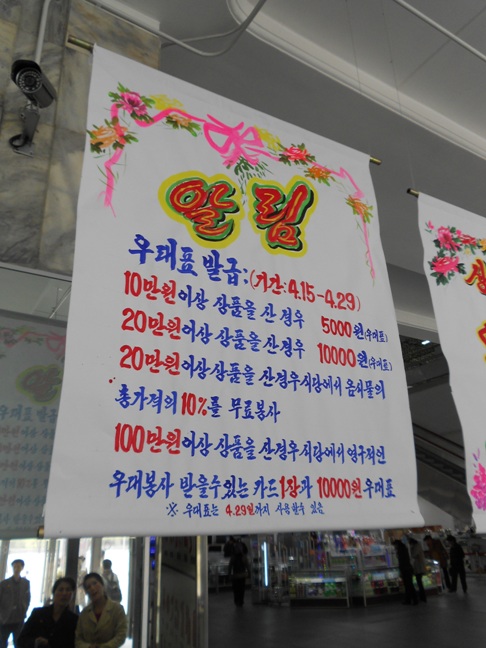 알림
우대표 발급:(기간:4.15-4.29)
10만원이상 상품을 산 경우 5000원(우대표)
20만원이상 상품을 산 경우 10000원(우대표)
20만원이상 상품을 산 경우 식당에서 음식물의
총가격의 10%를 무료봉사
100만원이상 상품을 산 경우 식당에서 영구적인
우대봉사 받을수 있는 카드 1장과 10000원 우대표
※ 우대표는 4.29일까지 사용할수 있음